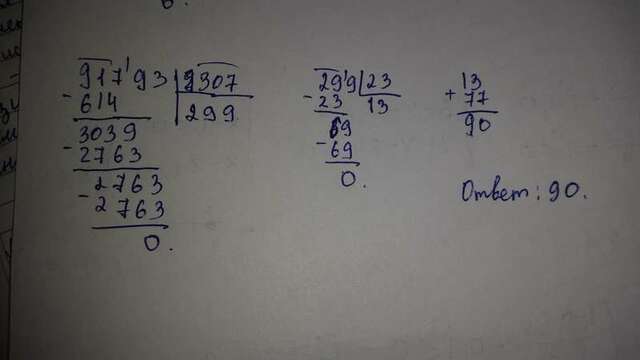 91793 | 307
- 614 | 299
3039
- 2763
2763
- 2763
0.
299 | 23
- 23 | 13
69
- 69
0.
13
+ 77
90
Ответ: 90.